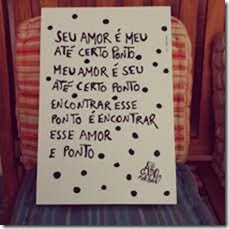 SEU AMOR É MEU
ATÉ CERTO PONTO
MEU AMOR É SEU
ATÉ CERTO PONTO
ENCONTRAR ESSE
PONTO É ENCONTRAR
ESSE AMOR
E PONTO